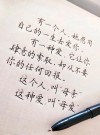 有一个人，她愿用
自己的一生去爱你
有一种爱，它让你
肆意的索取，却从不要
你的任何回报。
这个人，叫母亲
这种爱，叫“母爱”